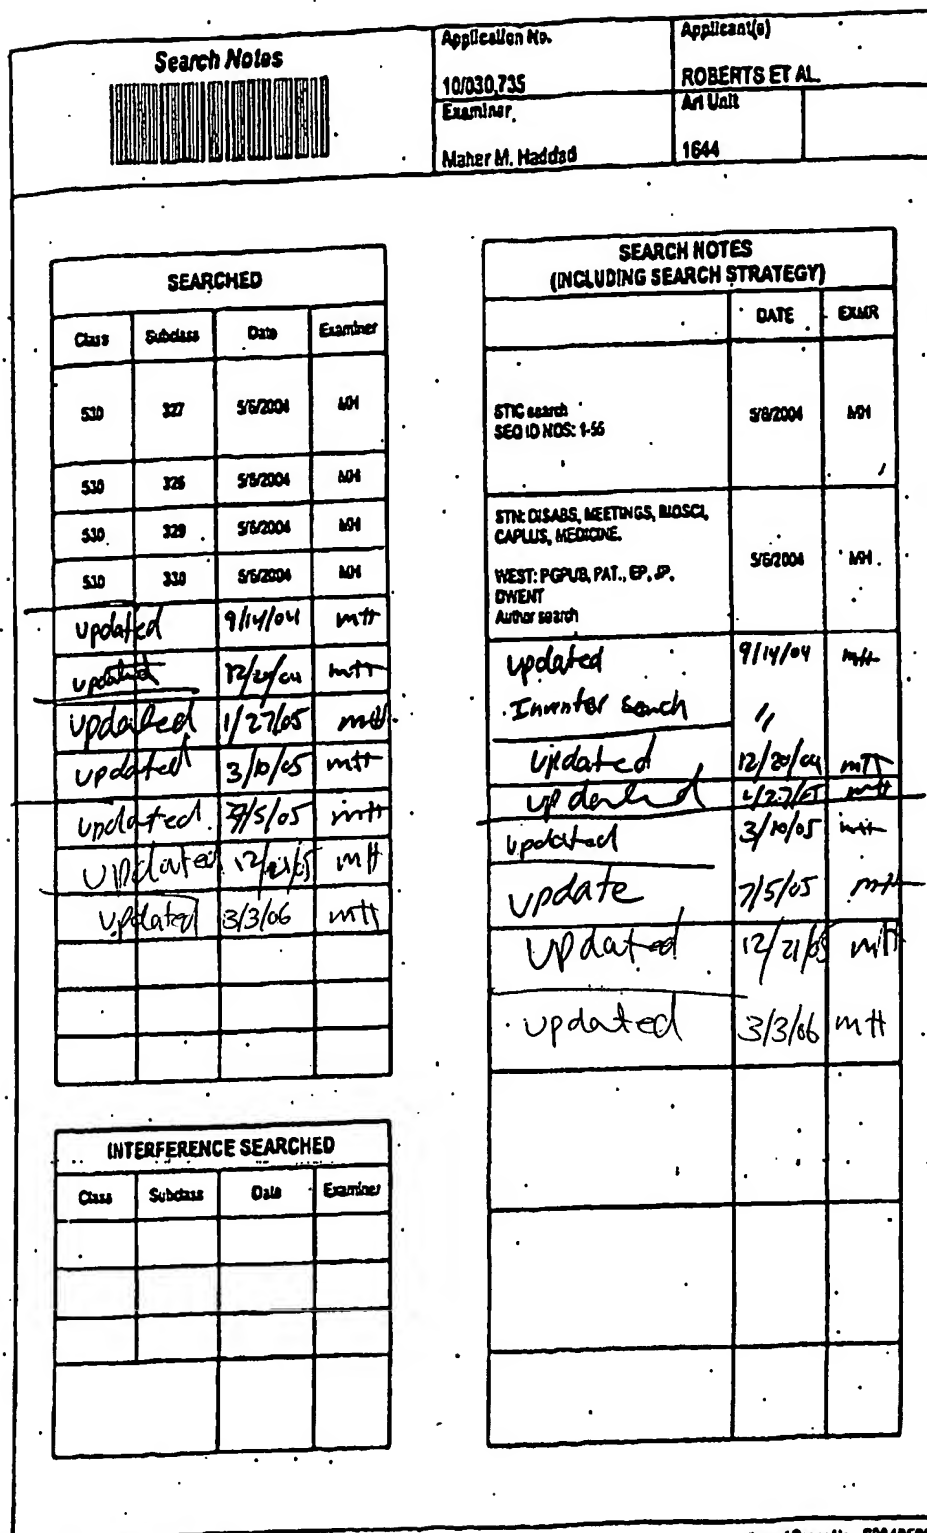 Search Notes
Application No.
10/030,735
Applicant(s)
ROBERTS ET AL.
Examiner
Maher M. Haddad
Art Unit
1644
SEARCHED
Class Subclass Date Examiner
530 327 5/6/2004 MH
530 326 5/6/2004 MH
530 329 5/6/2004 MH
530 330 5/6/2004 MH
updated 9/14/04 mH
updated 12/20/04 mH
updated 1/27/05 mH
updated 3/10/05 mH
updated 7/5/05 mH
updated 12/21/05 mH
updated 3/3/06 mH
INTERFERENCE SEARCHED
Class Subclass Date Examiner
SEARCH NOTES
(INCLUDING SEARCH STRATEGY)
DATE EXMR
STIC search
SEQ ID NOS: 1-56
5/6/2004 MH
STN: DISABS, MEETINGS, BIOSCI,
CAPLUS, MEDICINE.
WEST: PGPUB, PAT., EP, JP,
DWENT
Author search
5/6/2004 MH
updated 9/14/04 mH
Inventor search "
updated 12/20/04 mH
updated 1/27/05 mH
updated 3/10/05 mH
update 7/5/05 mH
updated 12/21/05 mH
updated 3/3/06 mH